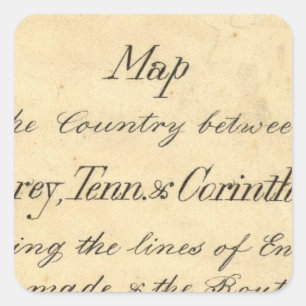 Map
he Country betwee
rey, Tenn. & Corinth
ing the lines of En
made & the Rout